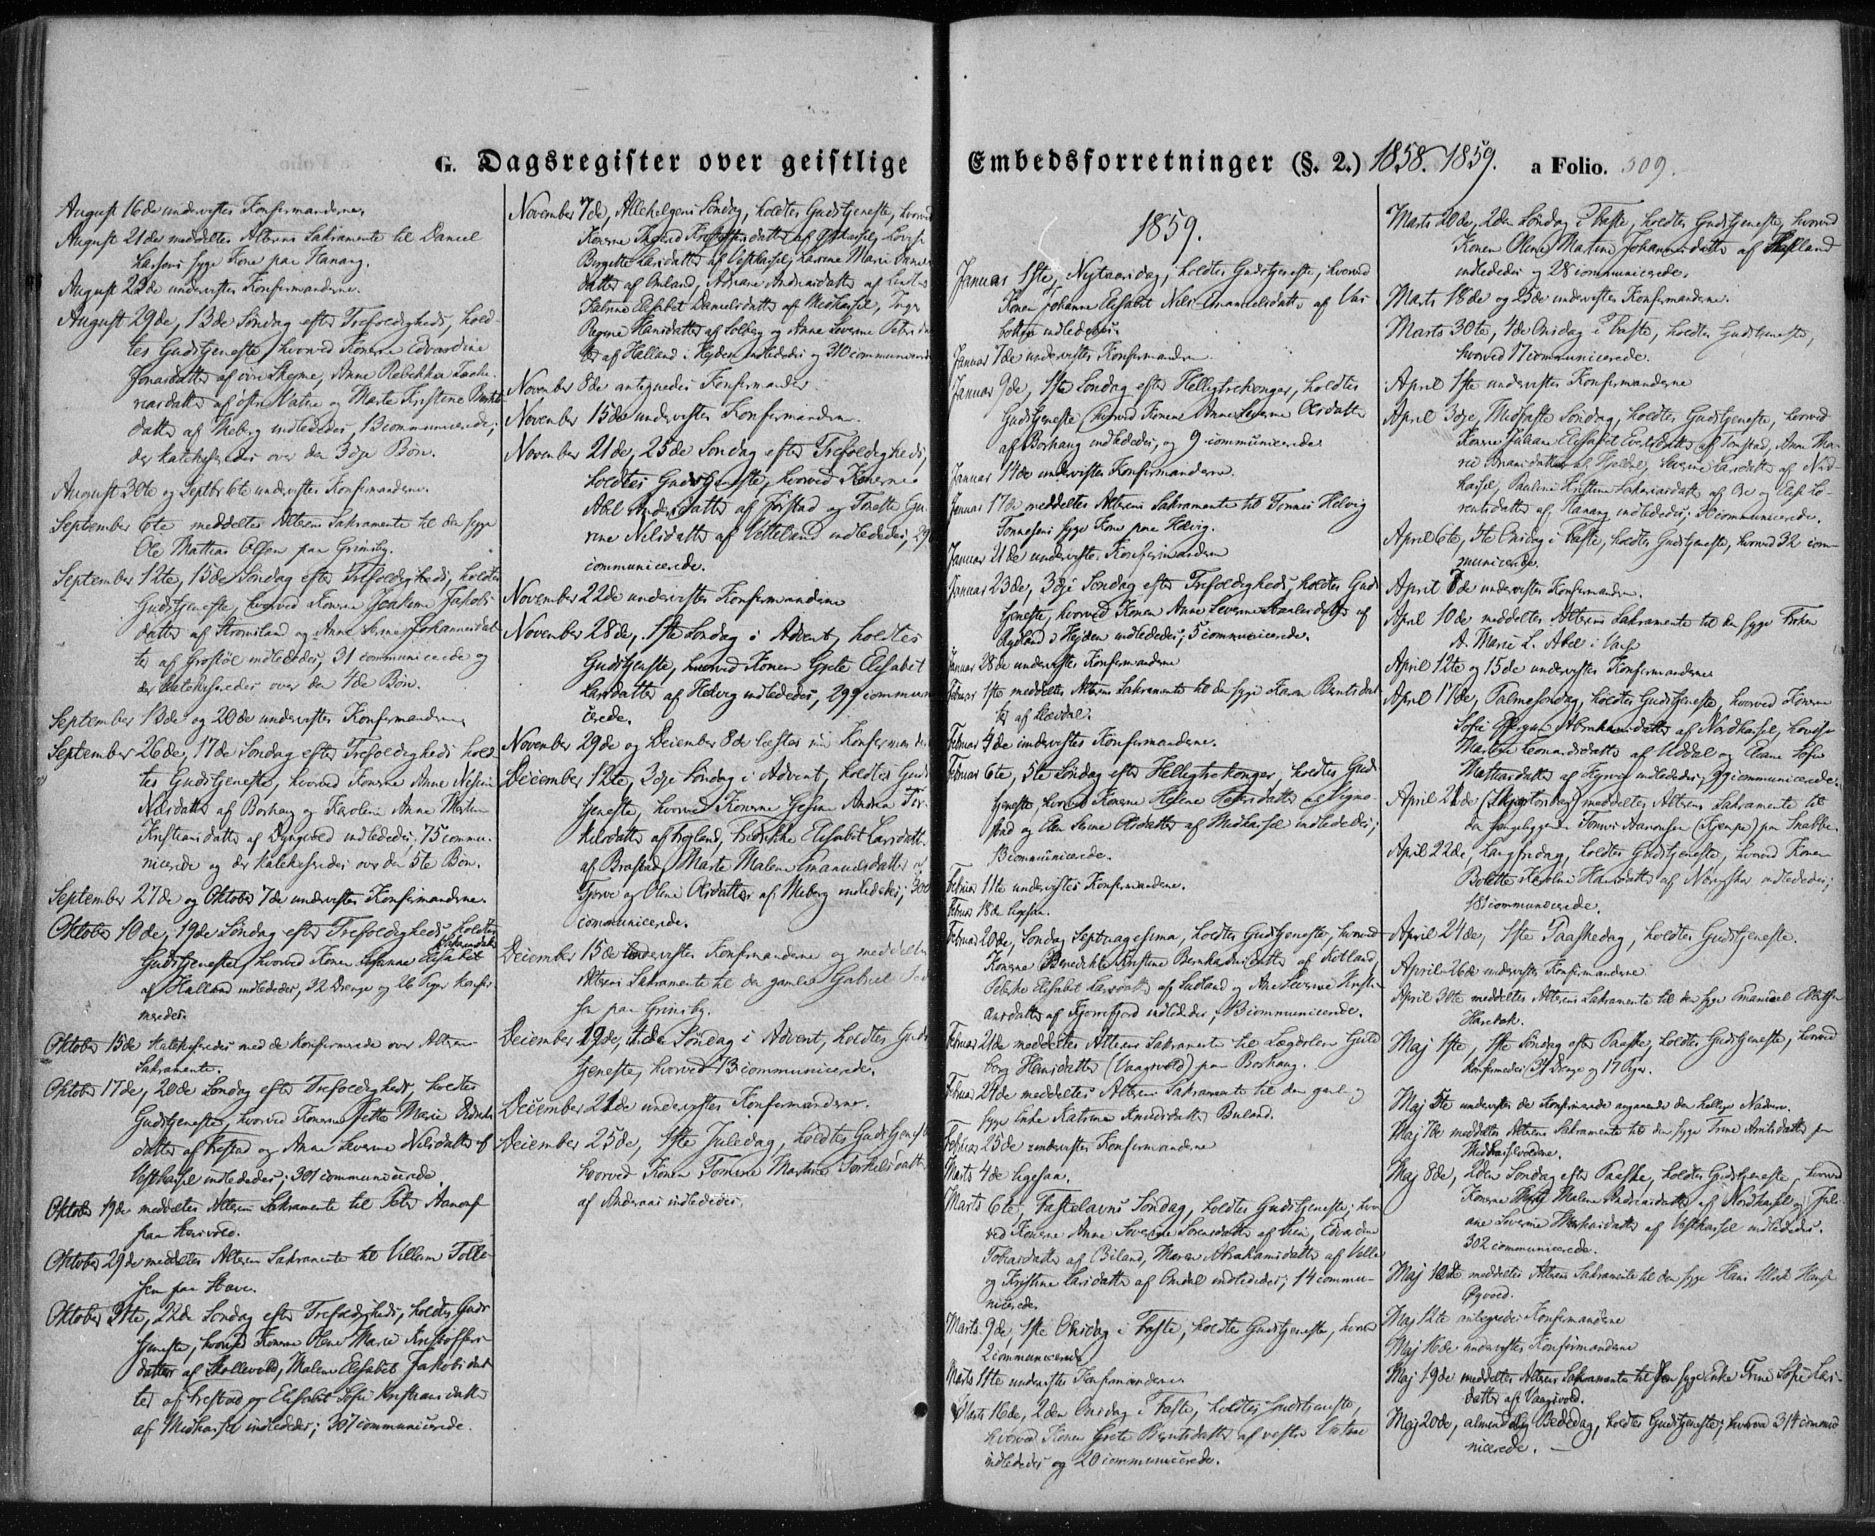 G. Dagsregister over geistlige Embedsforretninger (§. 2.) 1858. 1859. a Folio. 509.
August 16de undervistes Konfirmanderne.
August 21de meddeltes Alterens Sakramente til Daniel
Larsons syge Kone paa Hanang.
August 22de undervistes Konfirmanderne.
August 29de, 13de Søndag efter Trefoldigheds, hold-
tes Gudstjeneste, hvorved Konerne Edvardine
Jonasdatter af øvre Skeime, Anne Rebekka Zacha-
riasdatter af østre Vatne og Marte Kristine
datter af Meberg indlededes, 13 communicerede;
der katekiseredes over den 3die Bøn.
August 30te og Septbr 6te undervistes Konfirmanderne.
September 6te meddeltes Alterens Sakramente til den syge
Ole Mathias Olsen paa Grimsby.
September 12te, 15de Søndag efter Trefoldigheds, holdtes
Gudstjeneste, hvorved Konerne Joakime Jakobs
datter af Stromsland og Anne Serine Johannesdat-
ter af Grostøl indlededes, 31 communicerede og
der katekiseredes over den 4de Bøn.
September 13de og 20de undervistes Konfirmanderne.
September 26de, 17de Søndag efter Trefoldigheds hold-
tes Gudstjeneste, hvorved Konerne Anne
Nilsdatter af Borhaug og Karoline Anne
Kristiansdatter af Dyngvold indlededes, 75 commu-
nicerede og der katekiseredes over den 5te Bøn.
September 27de og Oktober 7de undervistes Konfirmanderne.
Oktober 10de, 19de Søndag efter Trefoldigheds holdtes
Gudstjeneste, hvorved Konen Susanne Elisabet
af Halland indlededes, 22 Drenge og 26 Piger konfir-
meredes.
Oktober 15de katekiseredes med de konfirmerede over Alterens
Sakramente.
Oktober 17de, 20de Søndag efter Trefoldigheds, holdtes
Gudstjeneste, hvorved Konerne Jette Marie
datter af Vestad og Anne Severine Nilsdatter af
Vesthassel indlededes; 301 communicerede.
Oktober 19de meddeltes Alterens Sakramente til Peter
paa
Oktober 29de meddeltes Alterens Sakramente til Villum Tolle-
sen paa Stave.
Oktober 31te, 22de Søndag efter Trefoldigheds, holdtes Guds-
tjeneste, hvorved Konerne Olene Marie Kristoffers-
datter af Skollevold, Malene Elisabet Jakobsdat-
ter af Vestad og Elisabet Sofie Kristiansdatter
af Midhassel indlededes; 307 communicerede.
November 7de, Allehelgens Søndag, holdtes Gudstjeneste, hvorved
Konerne Ingerd af Østhassel, Lovise
Birgitte Larsdatter af Vesthassel, Laurene Marie Daniels
datter af Omland, Adriane Andreasdatter af
Helene Elisabet Danielsdatter af Midhassel, Inger
Regine Hansdatter af Solberg og Anne Severine Peters
datter af Halland i Heyden indlededes og 310 communicerede
November 8de antegnedes Konfirmander.
November 15de undervistes Konfirmanderne.
November 21de, 25de Søndag efter Trefoldigheds,
holdtes Gudstjeneste, hvorved Konerne
Abel Andersdatter af Jorstad og Tonette Gu-
rine Nilsdatter af Vetteland indlededes, 29
communicerede.
November 22de undervistes Konfirmanderne
November 28de, 1ste Søndag i Advent, holdtes
Gudstjeneste, hvorved Konen Grete Elisabet
Larsdatter af Helvig indlededes, 299 communi-
cerede.
November 29de og December 8de læstes med Konfirmanderne
December 12te, 3die Søndag i Advent, holdtes Guds-
tjeneste, hvorved Konerne Gesine Andrea Ter-
kelsdatter af Fogland, Fredrikke Elisabet Larsdatter
af Brastad, Marte Malene Emanuelsdatter af
Tjorve og Oline Olsdatter af Meberg indlededes; 300
communicerede.
December 15de undervistes Konfirmanderne og meddeltes
Alterens Sakramente til den gamle Gabriel
sen paa Grimsby.
December 19de, 4de Søndag i Advent, holdtes Guds-
tjeneste, hvorved 13 communicerede.
December 21de undervistes Konfirmanderne.
December 25de, 1ste Juledag, holdtes Gudstjeneste
hvorved Konen Tomine Martine Torkelsdatter
af Andraas indlededes.
1859.
Januar 1ste, Nytaarsdag, holdtes Gudstjeneste, hvorved
Konen Johanne Elisabet Nils Emanuelsdatter af Var-
indlededes.
Januar 7de undervistes Konfirmanderne
Januar 9de, 1ste Søndag efter Helligtrekonger, holdtes
Gudstjeneste hvorved Konen Anne Severine Olsdatter
af Borhaug indlededes, og 9 communicerede
Januar 14de undervistes Konfirmanderne.
Januar 17de meddeltes Alterens Sakramente til Tonnes Helvig
Tonnesens syge Kone paa Helvig.
Januar 21de undervistes Konfirmanderne
Januar 23de, 3die Søndag efter Trefoldigheds, holdtes Guds-
tjeneste, hvorved Konen Anne Severine Samuelsdatter af
Rødland i Heyden indlededes; 5 communicerede.
Januar 28de undervistes Konfirmanderne
Februar 1ste meddeltes Alterens Sakramente til den syge Karen Berntsdat-
ter af Skeivdal.
Februar 4de undervistes Konfirmanderne.
Februar 6te, 5te Søndag efter Helligtrekonger, holdtes Guds-
tjeneste, hvorved Konerne Helene Petersdatter af Vigme-
stad og Elen Serine Olsdatter af Midhassel indlededes;
13 communicerede.
Februar 11te undervistes Konfirmanderne.
Februar 18de ligesaa.
Februar 20de, Søndag Septuagesima, holdtes Gudstjeneste, hvorved
Konerne Benedikte Kristine Berntsdatter af Rødland,
Peternelle Elisabet Larsdatter af Sadland og Ane Severine Kristi-
ansdatter af Kjørrefjord indlededes; 13 communicerede.
Februar 21de meddeltes Alterens Sakramente til Lægdslem Guld-
borg Hansdatter (Vaagsvold) paa Borhaug.
Februar 24de meddeltes Alterens Sakramente til den gamle og
syge Enke Katrine Andersdatter Buland.
Februar 25de undervistes Konfirmanderne
Marts 4de ligesaa.
Marts 6te, Fastelavns Søndag, holdtes Gudstjeneste, hvor-
ved Konerne Anne Severine Sørensdatter af Sten, Edvardine
Tobiasdatter af Biland, Maren Abrahamsdatter af Velle
og Kristine Larsdatter af Omdal indlededes; 14 commu-
nicerede.
Marts 9de, 1ste Onsdag i Faste, holdtes Gudstjeneste, hvorved
2 communicerede
Marts 11te undervistes Konfirmanderne
Marts 16de, 2den Onsdag i Faste, holdtes Gudstjeneste,
hvorved Konen Grete Berntsdatter af vestre Vatne
indlededes og 20 communicerede.
Marts 20de, 2den Søndag i Faste, holdtes Gudstjeneste, hvorved
Konen Olene Martine Johannesdatter af
indlededes og 28 communicerede.
Marts 18de og 25de undervistes Konfirmanderne.
Marts 30te, 4de Onsdag i Faste, holdtes Gudstjeneste,
hvorved 17 communicerede.
April 1ste undervistes Konfirmanderne
April 3die, Midfaste Søndag, holdtes Gudstjeneste, hvorved
Konerne Juliane Elisabet Evertsdatter af Jonstad, Anne Tha-
rie af Fjeldre, Severine Larsdatter af Nord-
hassel, Pauline Kristine Sakariasdatter af Ore og Else Lo-
rentsdatter af Hanang indlededes; 30 communicerede.
April 6te, 5te Onsdag i Faste, holdtes Gudstjeneste, hvorved 32 com-
municerede.
April 7de undervistes Konfirmanderne.
April 10de meddeltes Alterens Sakramente til den syge Frøken
A. Marie L. Abel i Vanse
April 12te og 15de undervistes Konfirmanderne
April 17de, Palmesøndag, holdtes Gudstjeneste, hvorved Konerne
Sofie Abrahamsdatter af Nordhassel, Lovise
Martine Leonardsdatter af Uddal og Elene Sofie
Mathiasdatter af Kjorvig indlededes, 99 communicerede.
April 21de (Skjærtorsdag) meddeltes Alterens Sakramente til
den sengeliggende Tonnes Aanonsen (Kjempe) paa Snekke-
April 22de, Langfredag, holdtes Gudstjeneste, hvorved Konen
Bolette Karoline Hansdatter af indlededes;
181 communicerede.
April 24de, 1ste Paaskedag, holdtes Gudstjeneste.
April 26de undervistes Konfirmanderne
April 30te meddeltes Alterens Sakramente til den syge Emanuel
Maj 1ste, 1ste Søndag efter Paaske, holdtes Gudstjeneste, hvorved
konfirmeredes 34 Drenge og 17 Piger.
Maj 5te undervistes de konfirmerede angaaende den hellige Nadvere.
Maj 7de meddeltes Alterens Sakramente til den syge Trine Arntsdatter paa
Midhasselvolden.
Maj 8de, 2den Søndag efter Paaske, holdtes Gudstjeneste, hvorved
Konerne Malene Andreasdatter af Nordhassel og Juli-
ane Severine Mathiasdatter af Vesthassel indlededes.
302 communicerede.
Maj 10de meddeltes Alterens Sakramente til den syge Hans
Maj 12te antegnedes Konfirmanderne
Maj 16de undervistes Konfirmanderne
Maj 19de meddeltes Alterens Sakramente til den syge Enke Trine Sofie Lars-
datter af Vaagsvold.
Maj 20de, almindelig Bededag, holdtes Gudstjeneste, hvorved 314 commu-
nicerede. —